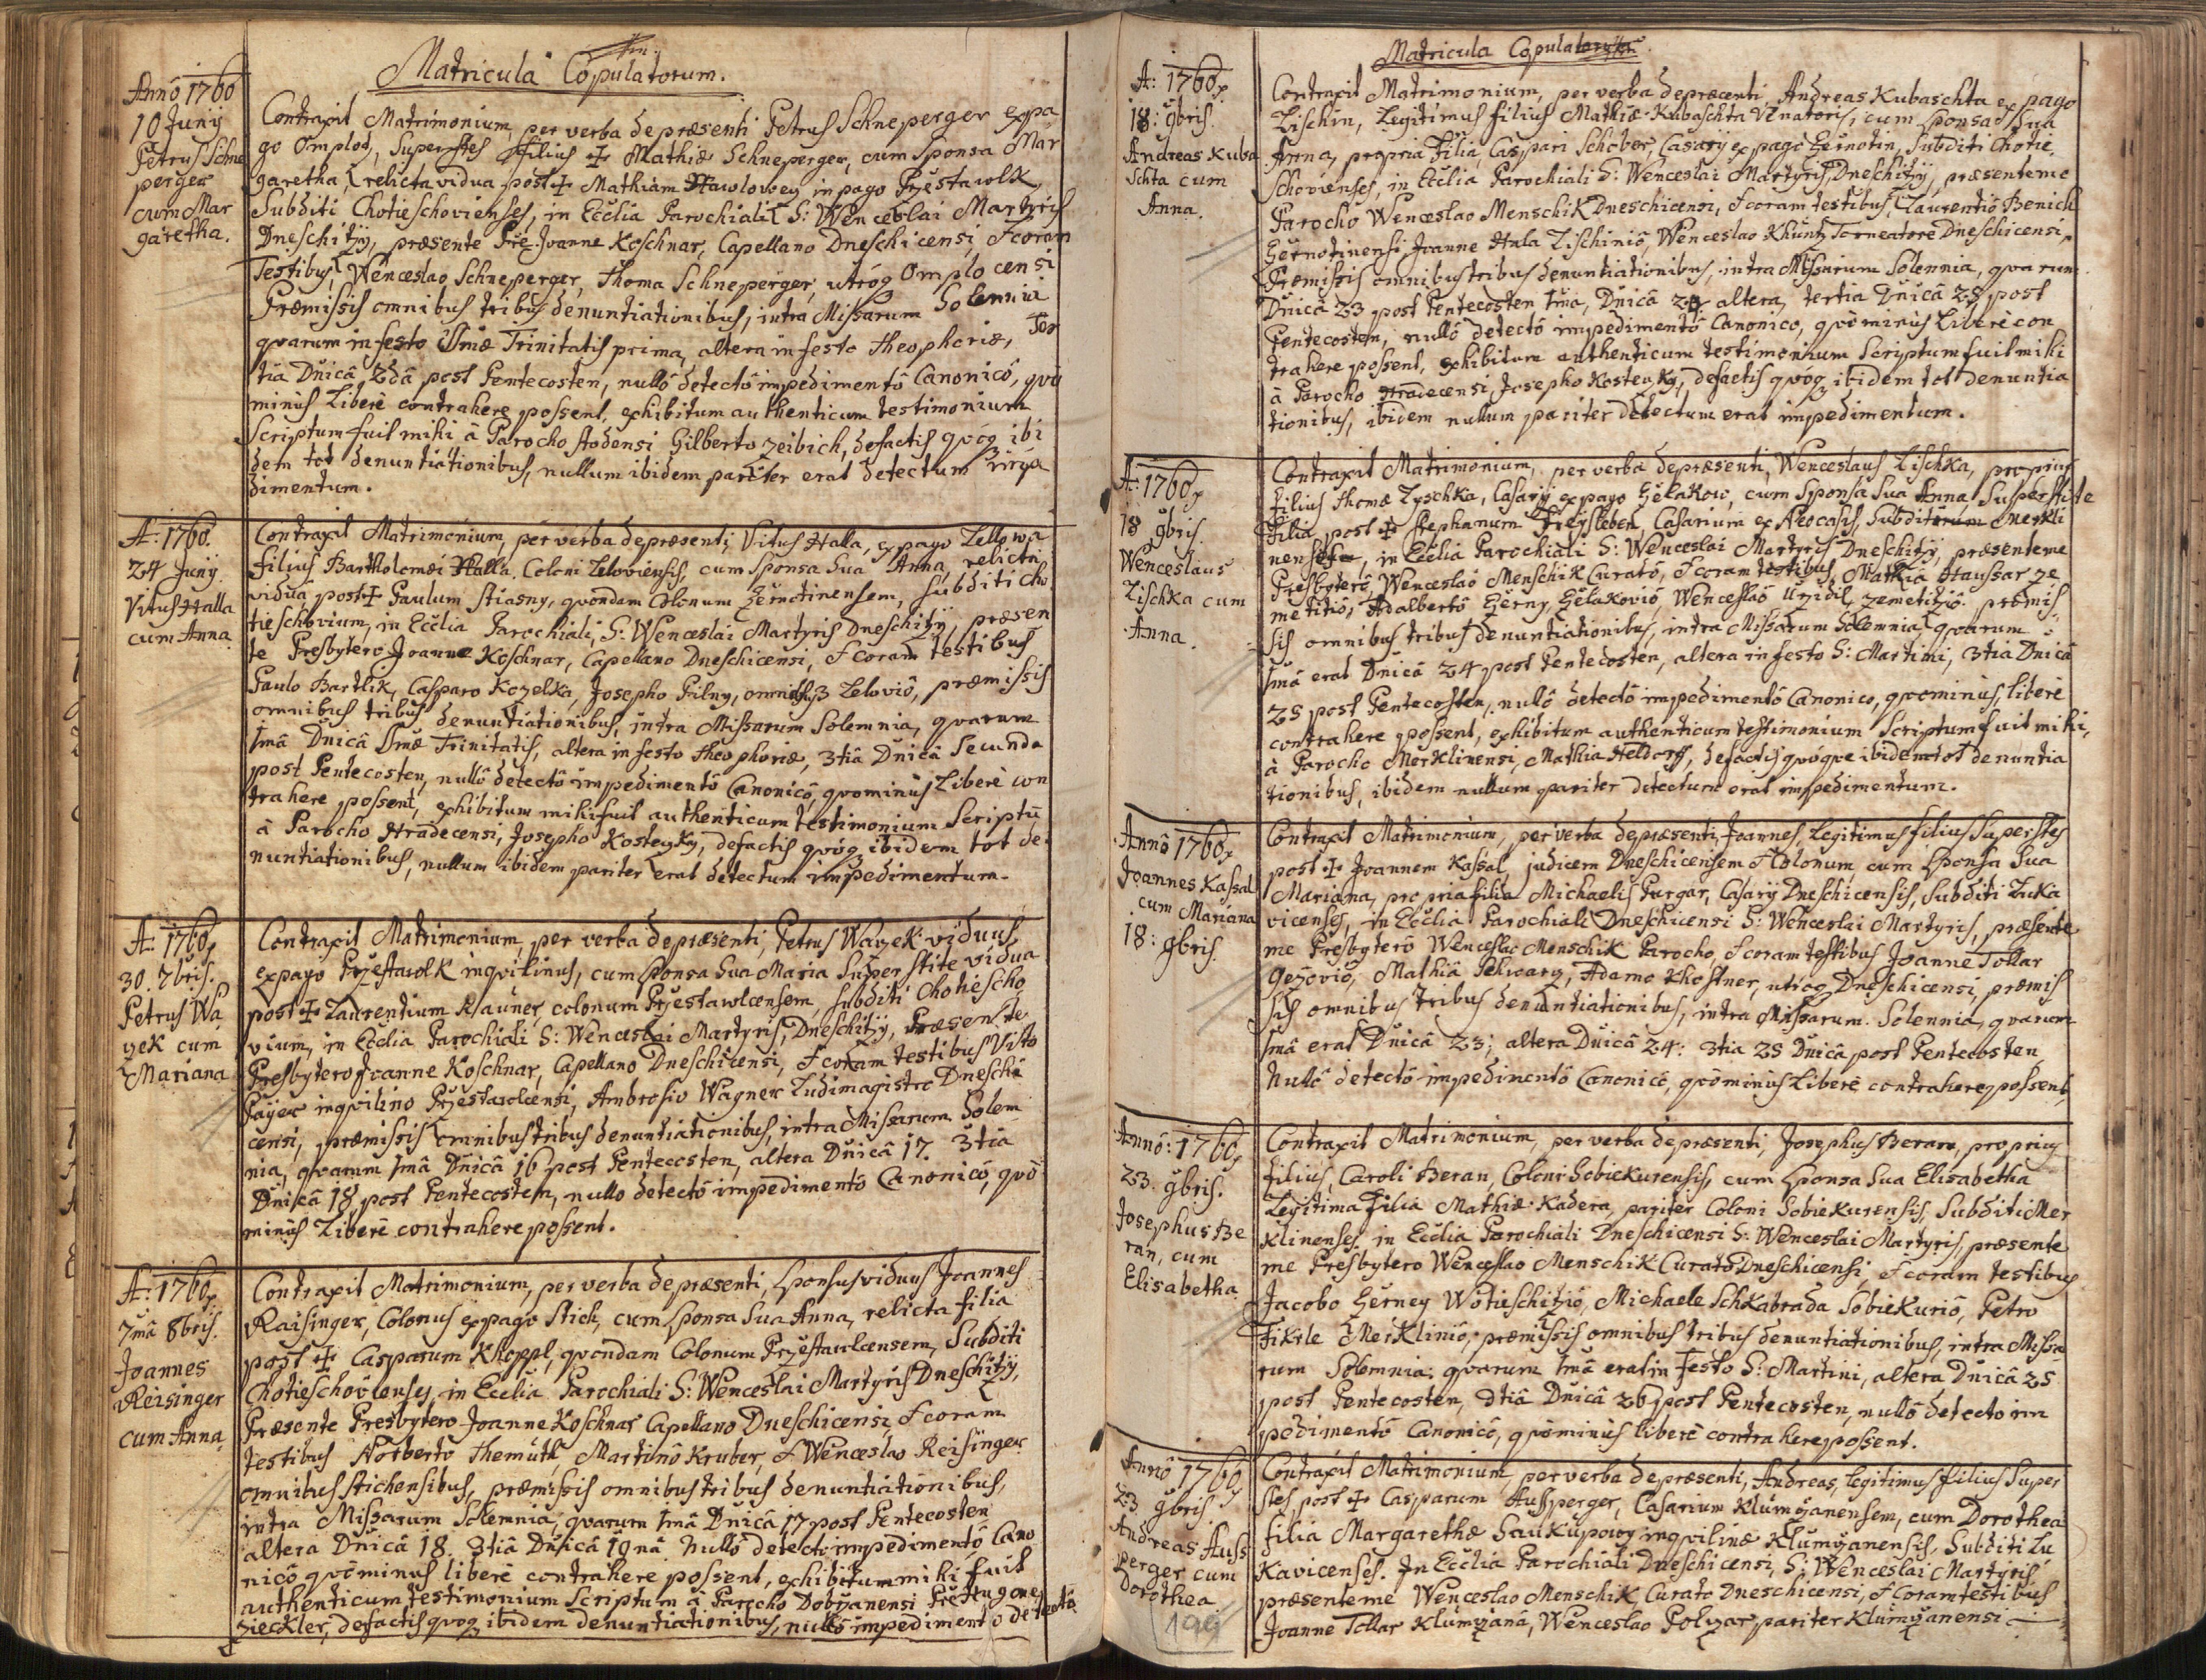 Matricula Copulatorum.
Annô 1760
10 Junÿ
Petrus Schne
perger
cum Mar
garetha.
Contraxit Matrimonium, per verba de præsenti Petrus Schneperger ex pa
go Omplot, Superstes filius ✠ Mathiæ Schneperger, cum Sponsa Mar
garetha, relicta vidua post ✠ Mathiam Hawlowey in pago Przestawlk
Subditi Chotieschovienses, in Ecclia Parochiali S: Wenceslai Martyris
Dneschitzÿ, præsente Pre Joanne Koschnar, Capellano Dneschicensi, & coram
Testibus, Wenceslao Schneperger, Thoma Schneperger, utrog Omplocensi
Præmissis omnibus tribus denuntiationibus, intra Missarum Solennia
qvarum in festo SSmæ Trinitatis prima, altera in festo Theophoriæ, Ter
tia Dnicâ 2dâ post Pentecosten, nullô detectô impedimentô Canonicô, qvô
minùs Liberè contrahere possent, exhibitum authenticum testimonium
Scriptum fuit mihi â Parocho stodensi Gilberto Zeibich, de factis qvóg ibi
dem tot denuntiationibus, nullum ibidem pariter erat detectum impe
dimentum.
A: 1760.
24 Junÿ.
Vitus Halla
cum Anna.
Contraxit Matrimonium, per verba de præsenti, Vitus Halla, ex pago Lellowa
filius Bartholomæi Halla, Coloni Leloviensis, cum Sponsa Sua Anna, relicta
vidua post ✠ Paulum Stiasny, qvondam Colonum Zernotinensem, Subditi Cho
tieschovium, in Ecclia Parochiali, S: Wenceslai Martyris Dneschitzÿ, præsen
te Presbytero Joanne Koschnar, Capellano Dneschicensi, & coram testibus
Paulo Bartlik, Casparo Kozelka, Josepho Pilny, omnibus 3 Leloviô, præmissis
omnibus tribus denuntiationibus, intra Missarum Solemnia, qvarum
1mâ Dnicâ SSmæ Trinitatis, altera in festo Theophoriæ, 3tiâ Dnicâ Secunda
post Pentecosten, nullô detectô impedimentô Canonicô, qvominùs Liberè con
trahere possent, exhibitum mihi fuit authenticum testimonium Scriptũ
â Parocho Hradecensi, Josepho Kosteyky, de factis qvóg ibidem tot de
nuntiationibus, nullum ibidem pariter erat detectum impedimentum.
A: 1760.
30. 7bris.
Petrus Wa
zek cum
Mariana
Contraxit Matrimonium, per verba de præsenti, Petrus Wazek viduus
ex pago Przestawlk inqvilinus, cum Sponsa Sua Maria Superstite vidua
post ✠ Laurentium Klauner, colonum Przestawlcensem, Subditi Chotiescho
vium, in Ecclia Parochiali S: Wenceslai Martyris, Dneschitzÿ, Præsente
Presbytero Joanne Koschnar, Capellano Dneschicensi, & coram testibus Vito
Paÿer inqvilino Przestawlcensi, Ambrosio Wagner Ludimagistro Dneschi
censi, præmissis omnibus tribus denuntiationibus, intra Missarum Solem
nia, qvarum 1mâ Dnicâ 16 post Pentecosten, altera Dnicâ 17. 3tia
Dnicâ 18 post Pentecostem, nullo detectô impedimentô Canonicô, qvô
minùs Liberè contrahere possent.
A: 1760.
7mâ 8bris.
Joannes
Reisinger
cum Anna.
Contraxit Matrimonium, per verba de præsenti, Sponsus viduus Joannes
Raisinger, Colonus ex pago Stich, cum Sponsa Sua Anna, relicta filia
post ✠ Casparum Khoppl, qvondam Colonum Przestawlcensem, Subditi
Chotieschovienses, in Ecclia Parochiali S: Wenceslai Martyris Dneschitzÿ,
Præsente Presbytero Joanne Koschnar Capellano Dneschicensi, & coram
testibus Norberto Themuth, Martinô Kruber, & Wenceslao Reisinger
omnibus Stichensibus, præmissis omnibus tribus denuntiationibus,
intra Missarum Solemnia, qvarum 1mâ Dnicâ 17 post Pentecosten
altera Dnicâ 18. 3tiâ Dnicâ 19nâ Nullô detectô impedimentô Cano
nicô qvôminus liberè contrahere possent, exhibitum mihi fuit
authenticum testimonium Scriptum â Parocho Dobrzanensi Pre
zieckler, de factis qvog ibidem denuntiationibus, nullô impedimento detecto
Matricula Copulatorum.
A: 1760.
18: 9bris.
Andreas Kuba
schta cum
Anna.
Contraxit Matrimonium, per verba de præcenti Andreas Kubaschta ex pago
Lischin, Legitimus filius Mathiæ Kubaschta Venatoris, cum Sponsa Sua
Anna, propria Filia, Caspari Schober, Casarÿ ex pago Zernotin, Subditi Chotie
schovienses, in Ecclia Parochiali S: Wenceslai Martyris Dneschitzÿ, præsente me
Parocho Wenceslao Menschik Dneschicensi, & coram testibus, Laurentiô Benich
Zernotinensi, Joanne Hula Lischiniô, Wenceslao Khuntz Torneatore Dneschicensi,
Præmissis omnibus tribus denuntiationibus, intra Missarum Solennia, qvarum
Dnicâ 23 post Pentecosten 1ma, Dnicâ 24 altera, tertia Dnicâ 25 post
Pentecosten, nullô detectô impedimentô Canonico, qvôminùs Liberè con
trahere possent, exhibitum authenticum testimonium Scriptum fuit mihi
â Parocho Hradecensi, Josepho Kosteyky, de factis qvóg ibidem tot denuntia
tionibus, ibidem nullum pariter detectum erat impedimentum.
A: 1760.
18 9bris.
Wenceslaus
Lischka cum
Anna.
Contraxit Matrimonium, per verba de præsenti, Wenceslaus Lischka, proprius
filius Thomæ Lyschka, Casarÿ ex pago Zelakow, cum Sponsa Sua Anna Superstite
Filia post ✠ Stephanum Freysleben, Casarium ex Neocasis, Subditorum Merkli
nensi, in Ecclia Parochiali S: Wenceslai Martyris Dneschitzÿ, præsente me
Presbyterô Wenceslaô Menschik Curatô, & coram testibus, Mathia Haussar ze
metitiô, Adalbertô Zerny, Zelakoviô, Wenceslaô Uzidil, Zemetitziô. præmis
sis omnibus tribus denuntiationibus, intra Missarum Solemnia, qvarum
1mâ erat Dnicâ 24 post Pentecosten, altera in festo S: Martini, 3tia Dnicâ
25 post Pentecosten, nullô detectô impedimentô Canonico, qvominùs, liberè
contrahere possent, exhibitum authenticum testimonium Scriptum fuit mihi,
â Parocho Merklinensi, Mathia Heldorff, de factis qvóqve ibidem tot denuntia
tionibus, ibidem nullum pariter detectum erat impedimentum.
Annô 1760.
Joannes Kassal
cum Mariana
18: 9bris.
Contraxit Matrimonium, per verba de præsenti, Joannes, Legitimus filius Superstes
post ✠ Joannem Kassal, judicem Dneschicensem & Colonum, cum Sponsa Sua
Mariana, propria filia Michaelis Purgar, Casarÿ Dneschicensis, Subditi Luka
vicenses, in Ecclia Parochiali Dneschicensi S: Wenceslai Martyris, præsente
me Presbyterô Wenceslao Menschik Parocho, & coram testibus Joanne Tollar
Gezoviô, Mathiâ Schwarz, Adamo Khostner, utróg Dneschicensi, præmis
sis omnibus tribus denuntiationibus, intra Missarum Solennia, qvarum
1mâ erat Dnicâ 23; altera Dnicâ 24: 3tia 25 Dnicâ post Pentecosten,
Nullô detectô impedimentô Canonicô, qvôminùs Liberè contrahere possent,
Annô: 1760.
23. 9bris.
Josephus Be
ran, cum
Elisabetha
Contraxit Matrimonium, per verba de præsenti, Josephus Beran, proprius
filius, Caroli Beran, Coloni Sobiekurensis, cum Sponsa Sua Elisabetha
Legitima Filia Mathiæ Kadera, pariter Coloni Sobiekurensis, Subditi Mer
klinenses, in Ecclia Parochiali Dneschicensi S: Wenceslai Martyris, præsente
me Presbytero Wenceslao Menschik Curatô Dneschicensi, & coram testibus
Jacobo Zerney Wotieschitziô, Michaele Schkabrada Sobiekuriô, Petro
Fikrle Merkliniô, præmissis omnibus tribus denuntiationibus, intra Missa
rum Solemnia: qvarum 1mâ erat in Festo S: Martini, altera Dnicâ 25
post Pentecosten, 3tiâ Dnicâ 26 post Pentecosten, nullô detecto im
pedimentô Canonicô, qvôminùs liberè contrahere possent.
Annô 1760
23 9bris.
Andreas Auss
perger cum
Dorothea
199
Contraxit Matrimonium, per verba de præsenti, Andreas, legitimus filius Super
stes post ✠ Casparum Ausperger, Casarium Klumzanensem, cum Dorothea
filia Margarethæ Saukupowy inqvilinæ Klumzanensis, Subditi Lu
kavicenses. In Ecclia Parochiali Dneschicensi, S: Wenceslai Martyris
præsente me Wenceslao Menschik, Curato Dneschicensi, & Coram testibus
Joanne Tollar Klumzianâ, Wenceslao Polzar pariter Klumzanensi